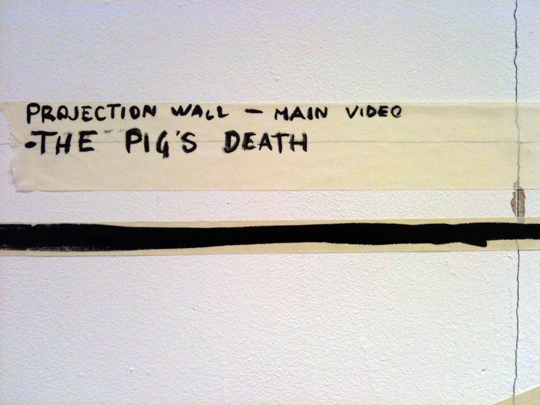 PROJECTION WALL – MAIN VIDEO
-THE PIG'S DEATH